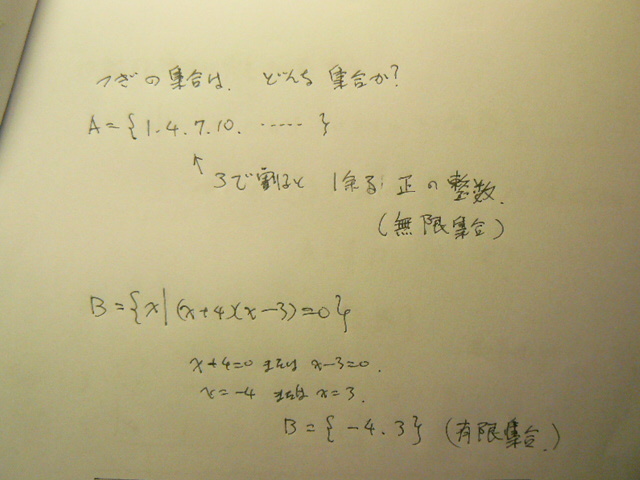 つぎの集合は、どんな集合か?
A={1.4.7.10. ‥‥‥ }
↑ 3で割ると 1余る 正の整数.
(無限集合)
B={x|(x+4)(x-3)=0}
x+4=0 または x-3=0.
x=-4 または x=3.
B={-4.3} (有限集合.)